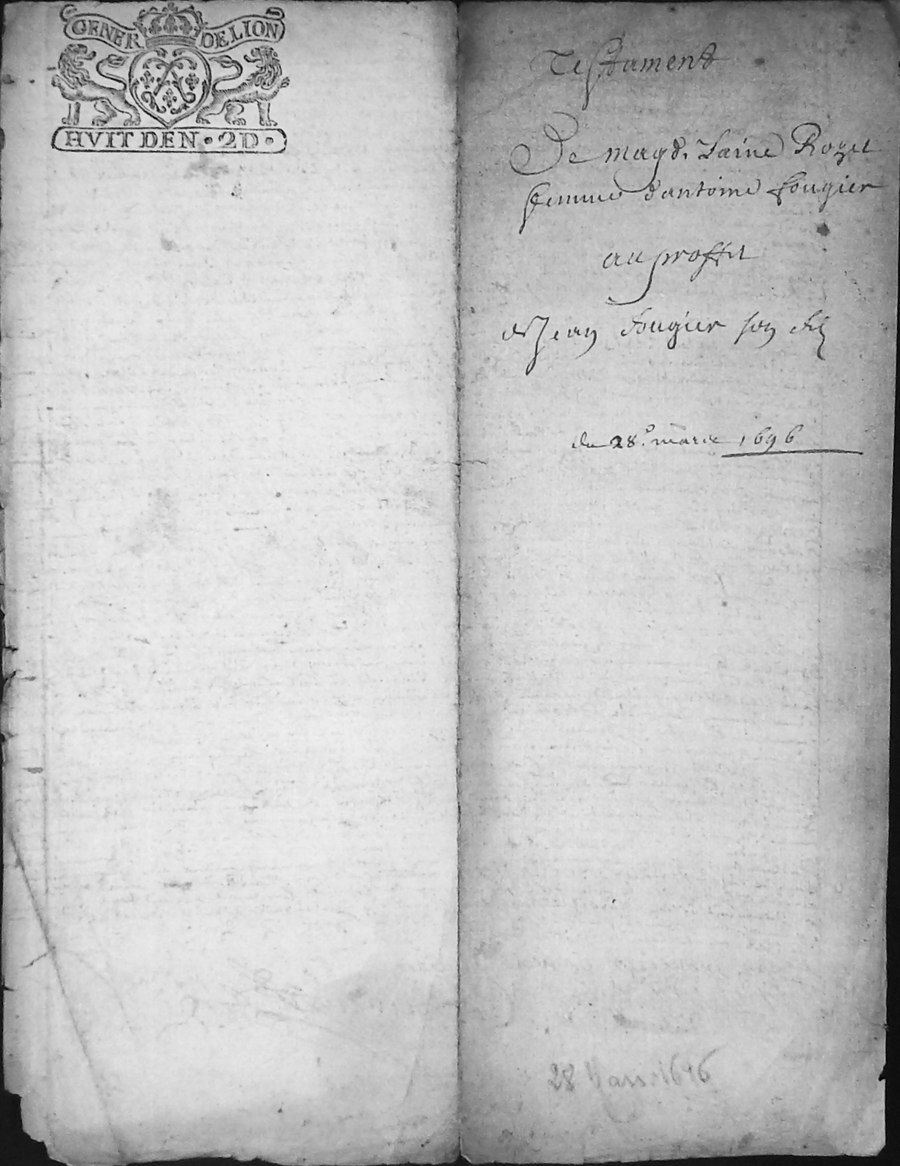 GENER DE LION
HVIT DEN · 2D ·
Testament
De magd. Laine Rozet
femme d'antoine fougier
au proffit
de Jean fougier son filz
du 28e mars 1696
28 Mars 1696